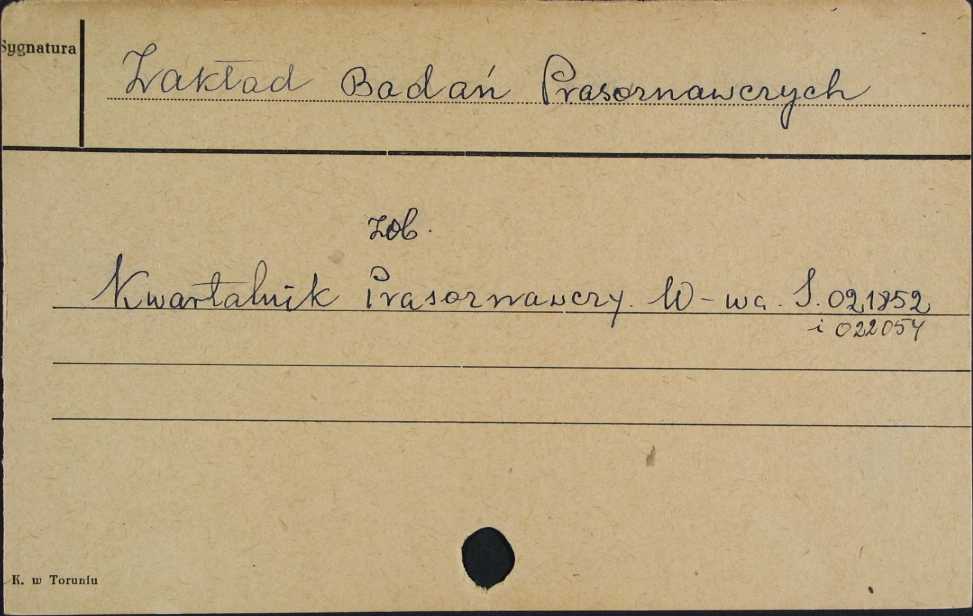 Sygnatura
Zakład Badań Prasoznawczych
zob.
Kwartalnik Prasoznawczy. W-wa. S. 021852
i 022054
K. w Toruniu